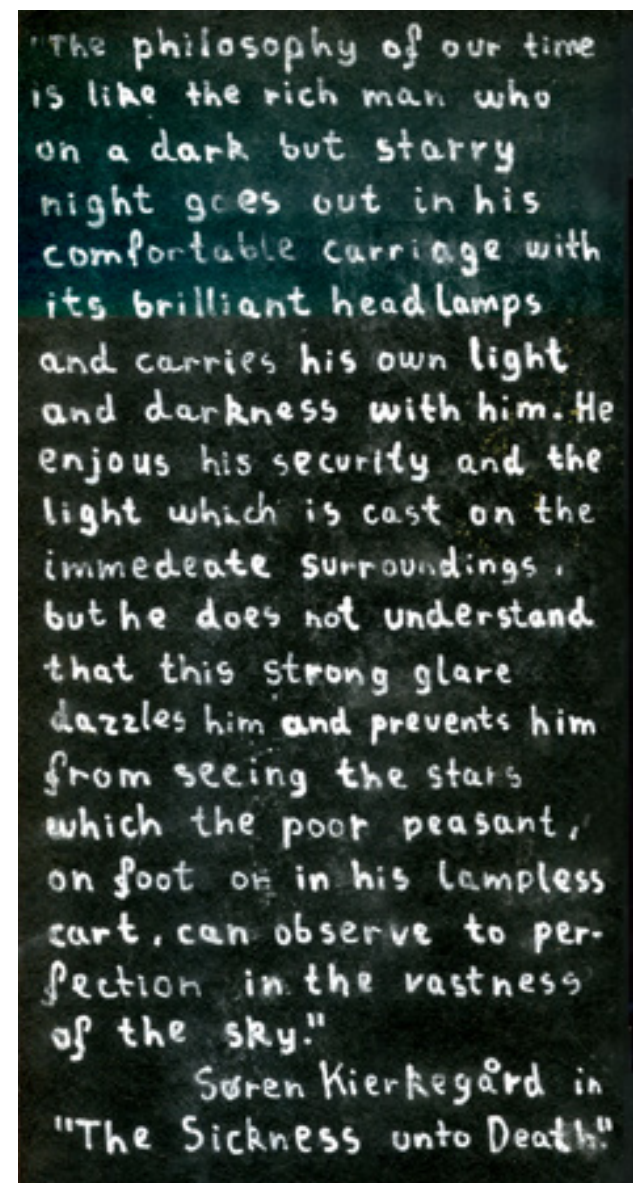 "The philosophy of our time
is like the rich man who
on a dark but starry
night goes out in his
comfortable carriage with
its brilliant head lamps
and carries his own light
and darkness with him. He
enjous his security and the
light which is cast on the
immedeate surroundings,
but he does not understand
that this strong glare
dazzles him and prevents him
from seeing the stars
which the poor peasant,
on foot or in his lampless
cart, can observe to per-
fection in the vastness
of the sky."
Søren Kierkegård in
"The Sickness unto Death."